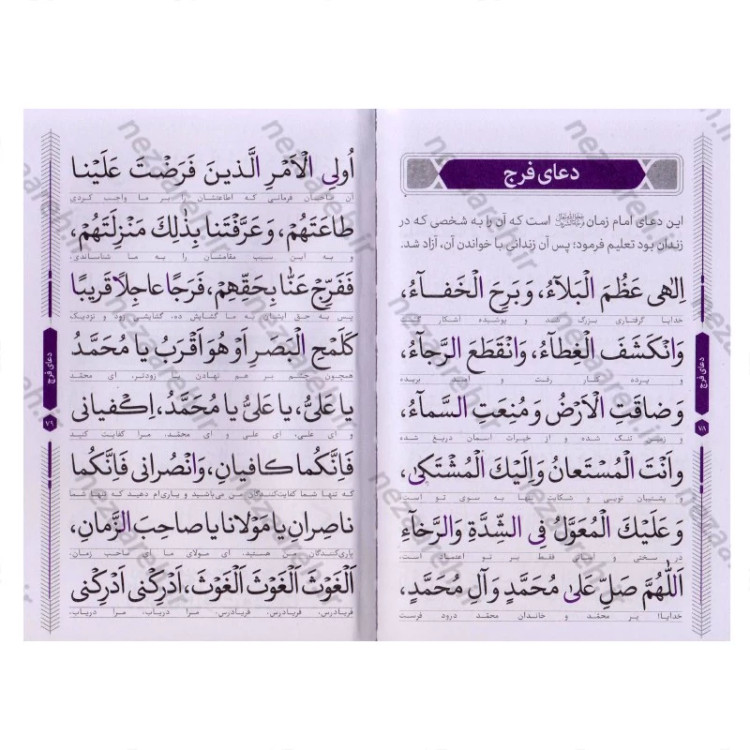 دعای فرج
این دعای امام زمان است که آن را به شخصی که در
زندان بود تعلیم فرمود؛ پس آن زندانی با خواندن آن، آزاد شد.
اِلٰهی عَظُمَ الْبَلآءُ، وَ بَرِحَ الْخَفـآءُ،
خدایا گرفتاری بزرگ شد و پوشیده آشکار گشت
وَ انْکَشَفَ الْغِطآءُ، وَ انْقَطَعَ الرَّجآءُ،
و پرده کنار رفت و امید بریده
وَ ضاقَتِ الْاَرْضُ وَ مُنِعَتِ السَّمآءُ،
و زمین تنگ شده و از خیرات آسمان دریغ شده
وَ اَنْتَ الْمُسْتَعانُ وَ اِلَیْكَ الْمُشْتَکیٰ،
پشتیبان تویی و شکایت تنها به سوی تو است
وَ عَلَیْكَ الْمُعَوَّلُ فِی الشِّدَّةِ وَ الرَّخآءِ
در سختی و آسانی فقط بر تو اعتماد است.
اَللّٰهُمَّ صَلِّ عَلیٰ مُحَمَّدٍ وَ آلِ مُحَمَّدٍ,
خدایا! بر محمّد و خاندان محمّد درود فرست
دعای فرج
اُولِی الْاَمْرِ الَّذینَ فَرَضْتَ عَلَیْنا
آن صاحبان فرمانی که اطاعتشان را بر ما واجب کردی
طاعَتَهُمْ، وَ عَرَّفْتَنا بِذٰلِكَ مَنْزِلَتَهُمْ،
و به این سبب مقامشان را به ما شناساندی.
فَفَرِّجْ عَنّا بِحَقِّهِمْ، فَرَجًا عاجِلًا قَریبًا
پس به حق ایشان به ما گشایش ده، گشایشی زود و نزدیک
کَلَمْحِ الْبَصَرِ اَوْ هُوَ اَقْرَبُ یا مُحَمَّدُ
همچون چشم بر هم نهادن یا زودتر، ای محمّد
یا عَلِیُّ، یا عَلِیُّ یا مُحَمَّدُ، اِکْفیانی
و ای علی، ای علی و ای محمّد، مرا کفایت کنید
فَاِنَّکُما کافِیانِ، وَ انْصُرانی فَاِنَّکُما
که تنها شما کفایت‌کنندگان من می‌باشید و یاری‌ام دهید که تنها شما
ناصِرانِ یا مَوْلانا یا صاحِبَ الزَّمانِ،
یاری‌کنندگان من هستید. ای مولای ما ای صاحب زمان.
اَلْغَوْثَ الْغَوْثَ الْغَوْثَ، اَدْرِکْنی اَدْرِکْنی
فریادرس، فریادرس، فریادرس، مرا دریاب، مرا دریاب.
دعای فرج
۷۹
nezaareh.ir